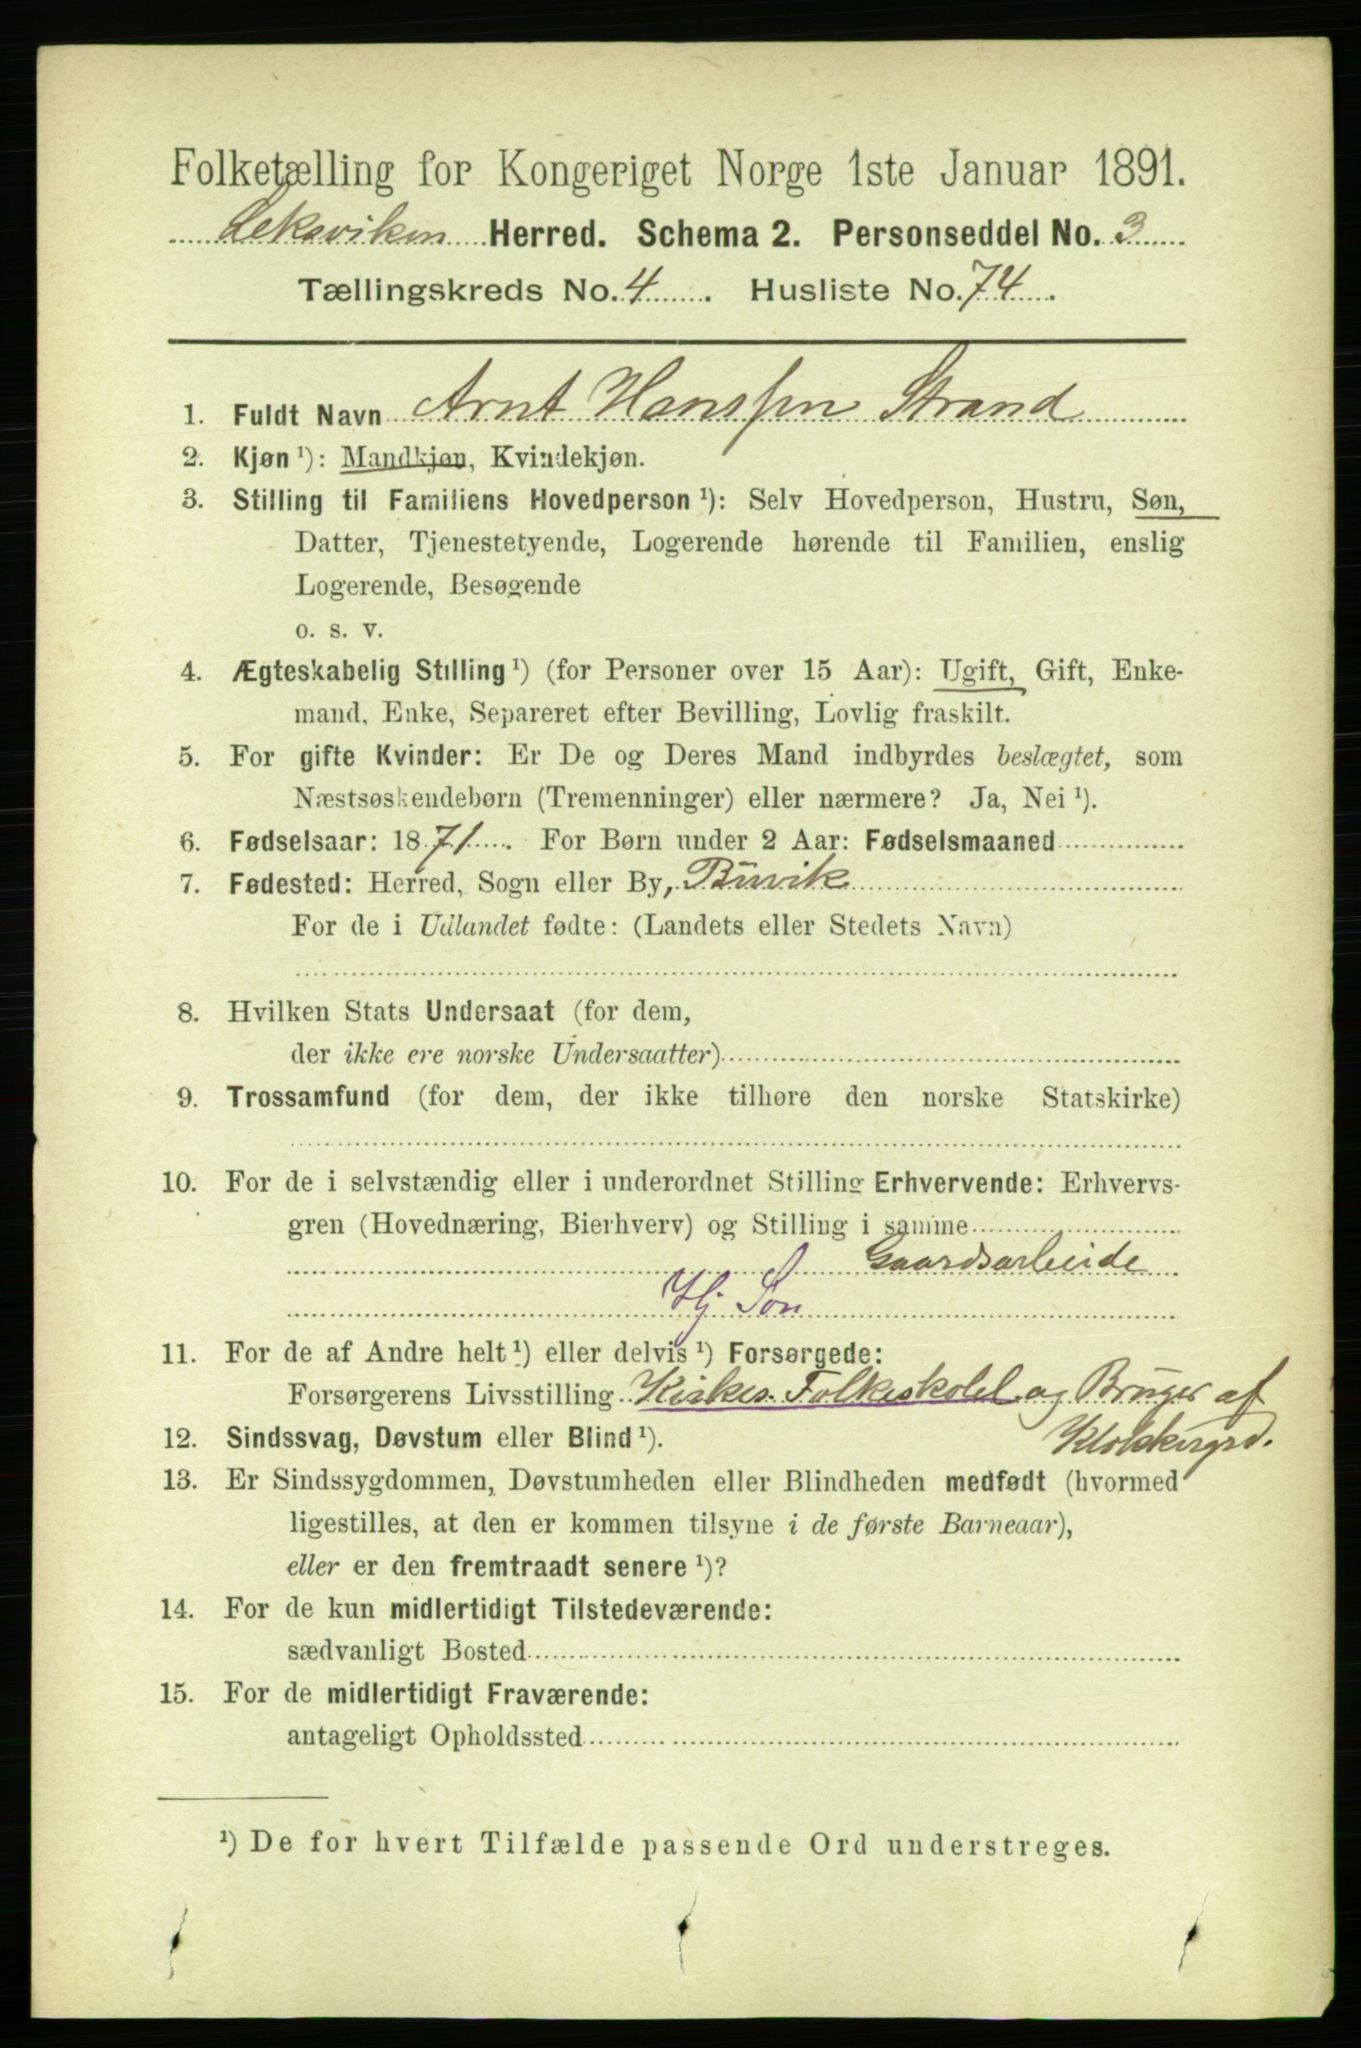 Folketælling for Kongeriget Norge 1ste Januar 1891.
Leksviken Herred. Schema 2. Personseddel No. 3
Tællingskreds No. 4. Husliste No. 74.
1. Fuldt Navn Arnt Hanssen Strand
2. Kjøn ¹): Mandkjøn, Kvindekjøn.
3. Stilling til Familiens Hovedperson ¹): Selv Hovedperson, Hustru, Søn,
Datter, Tjenestetyende, Logerende hørende til Familien, enslig
Logerende, Besøgende
o. s. v.
4. Ægteskabelig Stilling ¹) (for Personer over 15 Aar): Ugift, Gift, Enke-
mand, Enke, Separeret efter Bevilling, Lovlig fraskilt.
5. For gifte Kvinder: Er De og Deres Mand indbyrdes beslægtet, som
Næstsøskendebørn (Tremenninger) eller nærmere? Ja, Nei ¹).
6. Fødselsaar: 1871. For Børn under 2 Aar: Fødselsmaaned
7. Fødested: Herred, Sogn eller By, Buvik
For de i Udlandet fødte: (Landets eller Stedets Navn)
8. Hvilken Stats Undersaat (for dem,
der ikke ere norske Undersaatter)
9. Trossamfund (for dem, der ikke tilhøre den norske Statskirke)
10. For de i selvstændig eller i underordnet Stilling Erhvervende: Erhvervs-
gren (Hovednæring, Bierhverv) og Stilling i samme
Gaardsarbeide
Hj Søn
11. For de af Andre helt ¹) eller delvis ¹) Forsørgede:
Forsørgerens Livsstilling Kirkes. Folkeskolel og Bruger af
12. Sindssvag, Døvstum eller Blind ¹).
13. Er Sindssygdommen, Døvstumheden eller Blindheden medfødt (hvormed
ligestilles, at den er kommen tilsyne i de første Barneaar),
eller er den fremtraadt senere ¹)?
14. For de kun midlertidigt Tilstedeværende:
sædvanligt Bosted
15. For de midlertidigt Fraværende:
antageligt Opholdssted
¹) De for hvert Tilfælde passende Ord understreges.